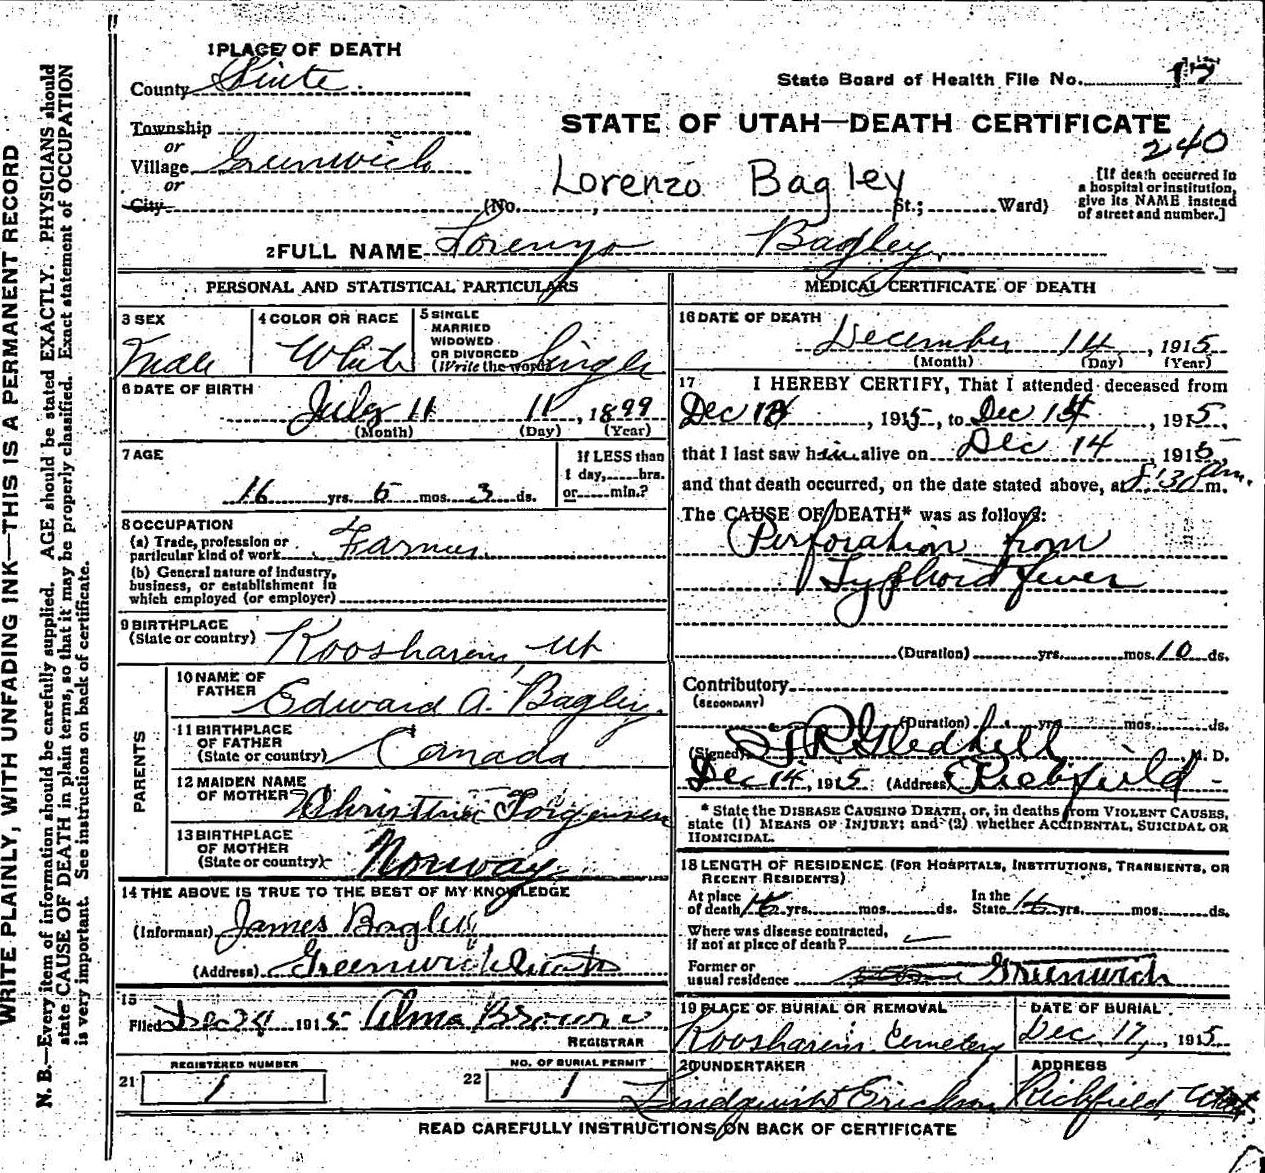 WRITE PLAINLY, WITH UNFADING INK—THIS IS A PERMANENT RECORD
N. B.—Every item of information should be carefully supplied. AGE should be stated EXACTLY. PHYSICIANS should
state CAUSE OF DEATH in plain terms, so that it may be properly classified. Exact statement of OCCUPATION
is very important. See instructions on back of certificate.
1 PLACE OF DEATH
County Piute
State Board of Health File No.
Township
or
Village Greenwich
or
City
STATE OF UTAH—DEATH CERTIFICATE
240
Lorenzo Bagley
(No. , St.; Ward)
[If death occurred in
a hospital or institution,
give its NAME instead
of street and number.]
2 FULL NAME Lorenzo Bagley
PERSONAL AND STATISTICAL PARTICULARS
3 SEX
Male
4 COLOR OR RACE
White
5 SINGLE
MARRIED
WIDOWED
OR DIVORCED
(Write the word) Single
6 DATE OF BIRTH
July 11 11, 1899
(Month) (Day) (Year)
7 AGE
16 yrs. 5 mos. 3 ds.
If LESS than
1 day, hrs.
or min.?
8 OCCUPATION
(a) Trade, profession or
particular kind of work Farmer
(b) General nature of industry,
business, or establishment in
which employed (or employer)
9 BIRTHPLACE
(State or country) Koosharem, Ut
PARENTS
10 NAME OF
FATHER Edward A. Bagley
11 BIRTHPLACE
OF FATHER
(State or country) Canada
12 MAIDEN NAME
OF MOTHER Christina Torgensen
13 BIRTHPLACE
OF MOTHER
(State or country) Norway
14 THE ABOVE IS TRUE TO THE BEST OF MY KNOWLEDGE
(Informant) James Bagley
(Address) Greenwich Utah
15
Filed Dec 1915 Alma Brown
REGISTRAR
21 REGISTERED NUMBER
1
22 NO. OF BURIAL PERMIT
1
MEDICAL CERTIFICATE OF DEATH
16 DATE OF DEATH
December 14, 1915
(Month) (Day) (Year)
17 I HEREBY CERTIFY, That I attended deceased from
Dec , 1915, to Dec , 1915,
that I last saw him alive on Dec 14, 1915,
and that death occurred, on the date stated above, at 8:30 am.
The CAUSE OF DEATH* was as follows:
Perforation from
Typhoid fever
(Duration) yrs. mos. 10 ds.
Contributory
(SECONDARY)
(Duration) yrs. mos. ds.
(Signed) T R Gledhill M. D.
Dec 14, 1915 (Address) Richfield
* State the DISEASE CAUSING DEATH, or, in deaths from VIOLENT CAUSES,
state (1) MEANS OF INJURY; and (2) whether ACCIDENTAL, SUICIDAL OR
HOMICIDAL.
18 LENGTH OF RESIDENCE (FOR HOSPITALS, INSTITUTIONS, TRANSIENTS, OR
RECENT RESIDENTS)
At place
of death 16 yrs. mos. ds.
In the
State 16 yrs. mos. ds.
Where was disease contracted,
if not at place of death?
Former or
usual residence Greenwich
19 PLACE OF BURIAL OR REMOVAL
Koosharem Cemetery
DATE OF BURIAL
Dec 17, 1915
20 UNDERTAKER
Lindquist Erickson
ADDRESS
Richfield, Utah
READ CAREFULLY INSTRUCTIONS ON BACK OF CERTIFICATE